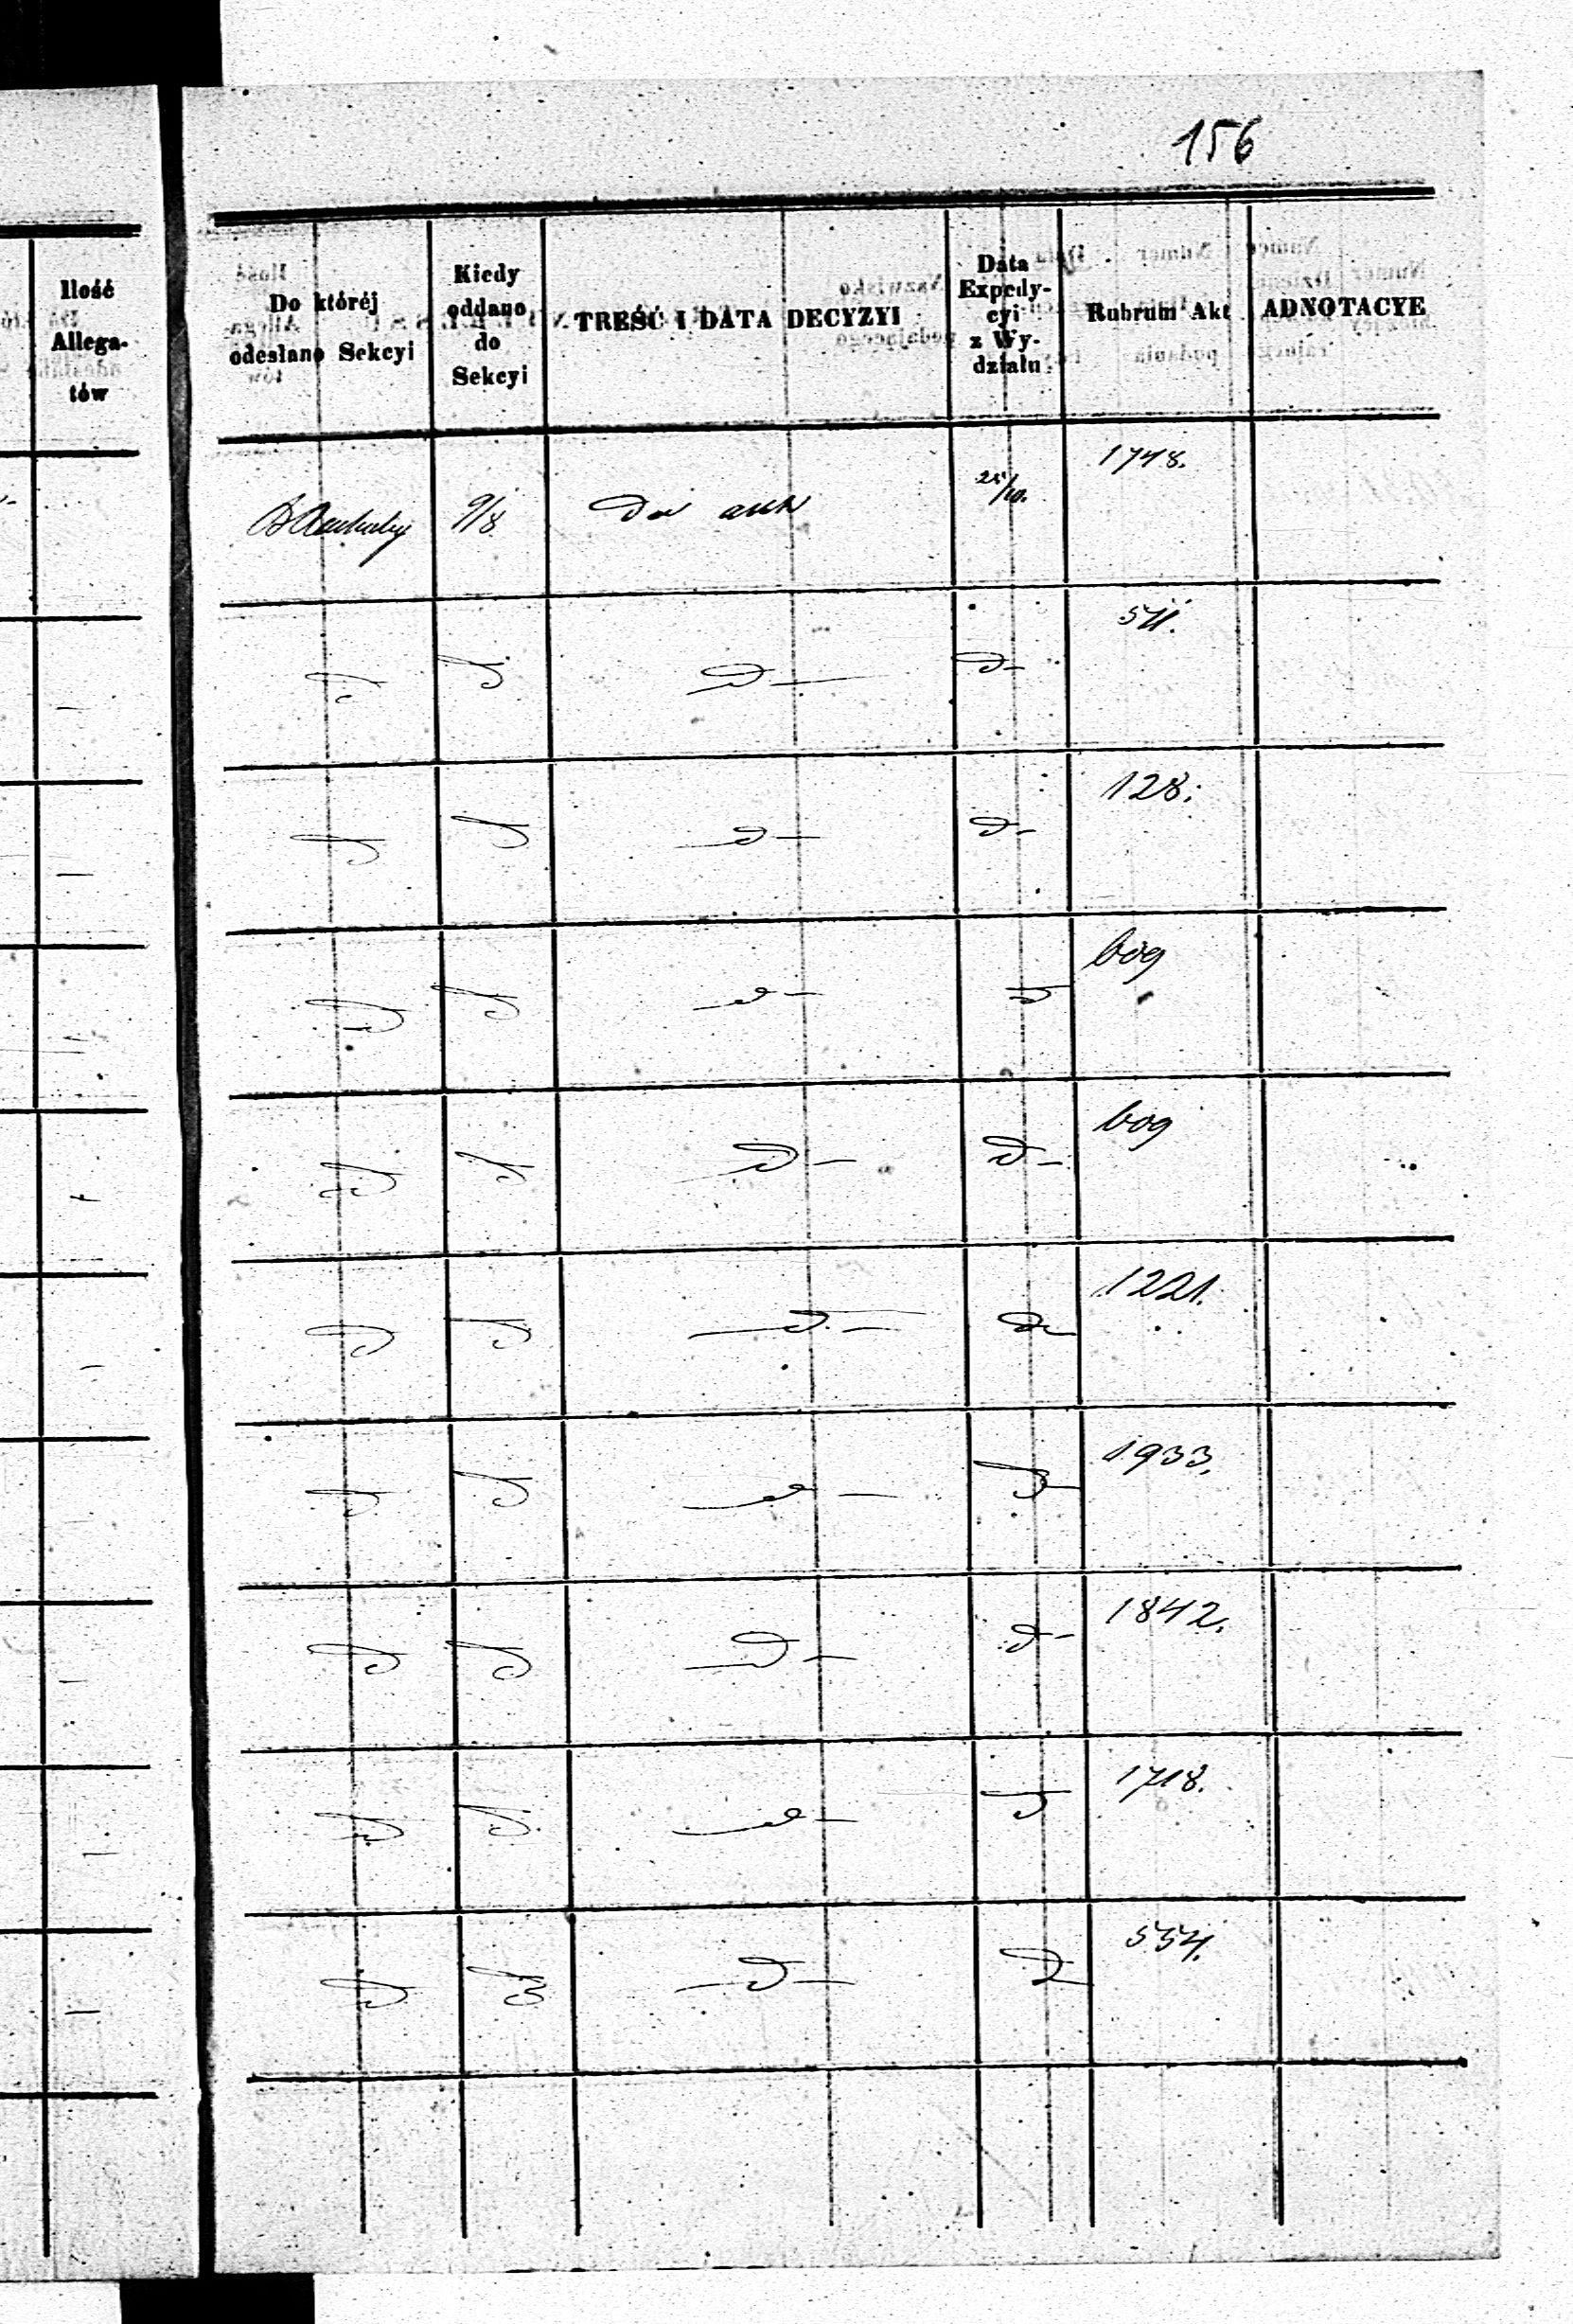 156
Ilość
Allega-
tów
Do któréj
odesłano Sekcyi
Kiedy
oddano
do
Sekcyi
TREŚĆ I DATA DECYZYI
Data
Expedy-
cyi
z Wy-
działu
Rubrum Akt
ADNOTACYE
9/8 Do akt 25/10. 1748.
d d d d 511.
d d d d 128.
d d d d
d d d d
d d d d 1221.
d d d d 1933.
d d d d 1842.
d d d d 1718.
d d d d 554.